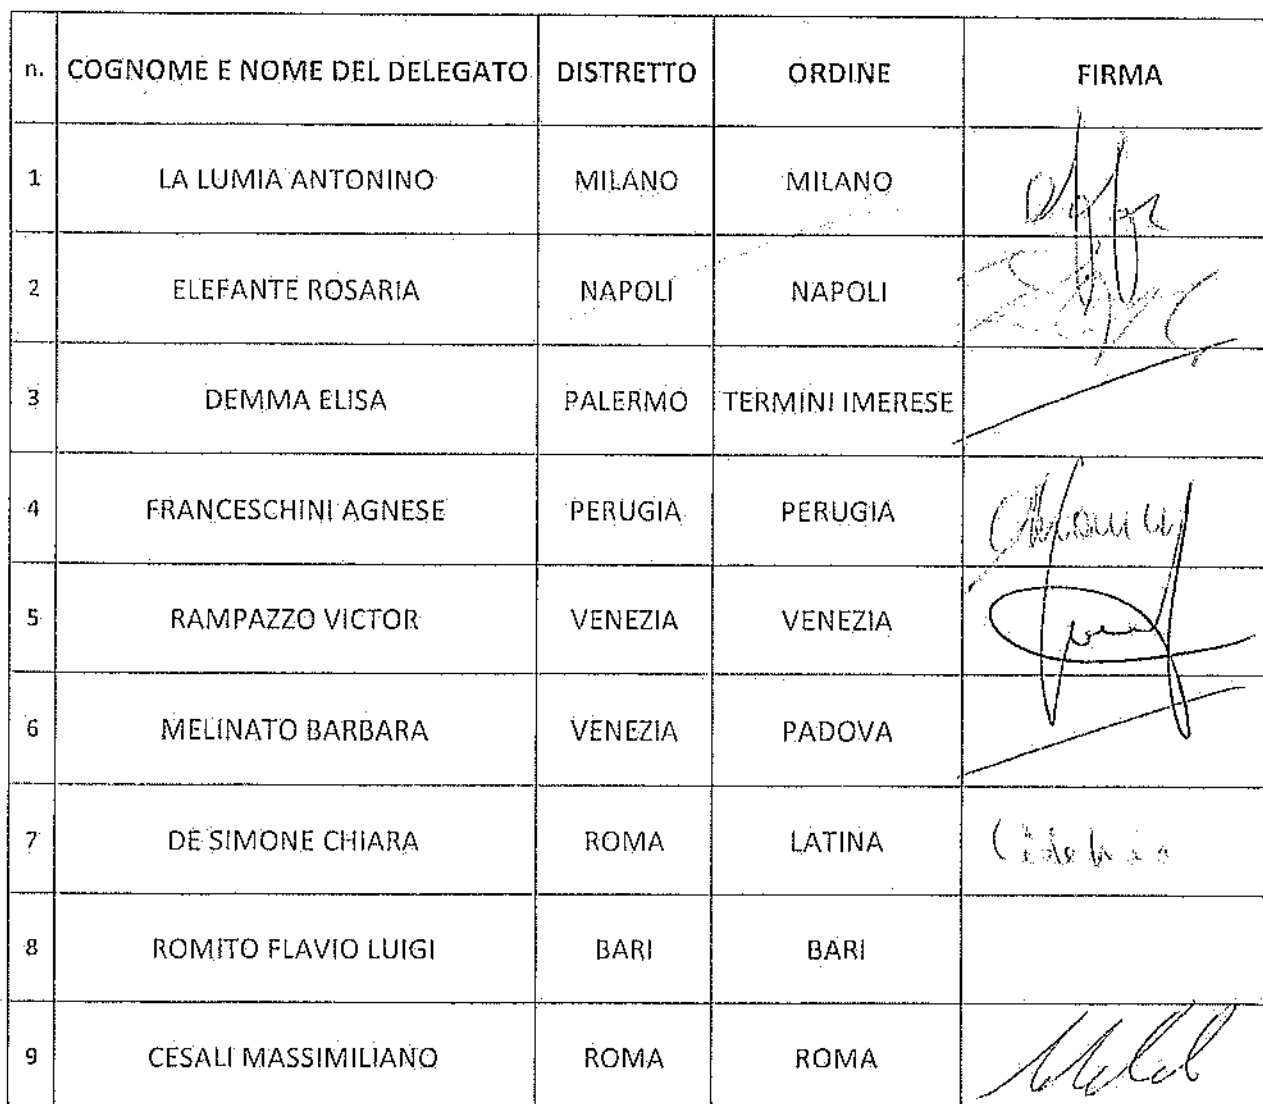 n. COGNOME E NOME DEL DELEGATO DISTRETTO ORDINE FIRMA
1 LA LUMIA ANTONINO MILANO MILANO
2 ELEFANTE ROSARIA NAPOLI NAPOLI
3 DEMMA ELISA PALERMO TERMINI IMERESE
4 FRANCESCHINI AGNESE PERUGIA PERUGIA
5 RAMPAZZO VICTOR VENEZIA VENEZIA
6 MELINATO BARBARA VENEZIA PADOVA
7 DE SIMONE CHIARA ROMA LATINA
8 ROMITO FLAVIO LUIGI BARI BARI
9 CESALI MASSIMILIANO ROMA ROMA